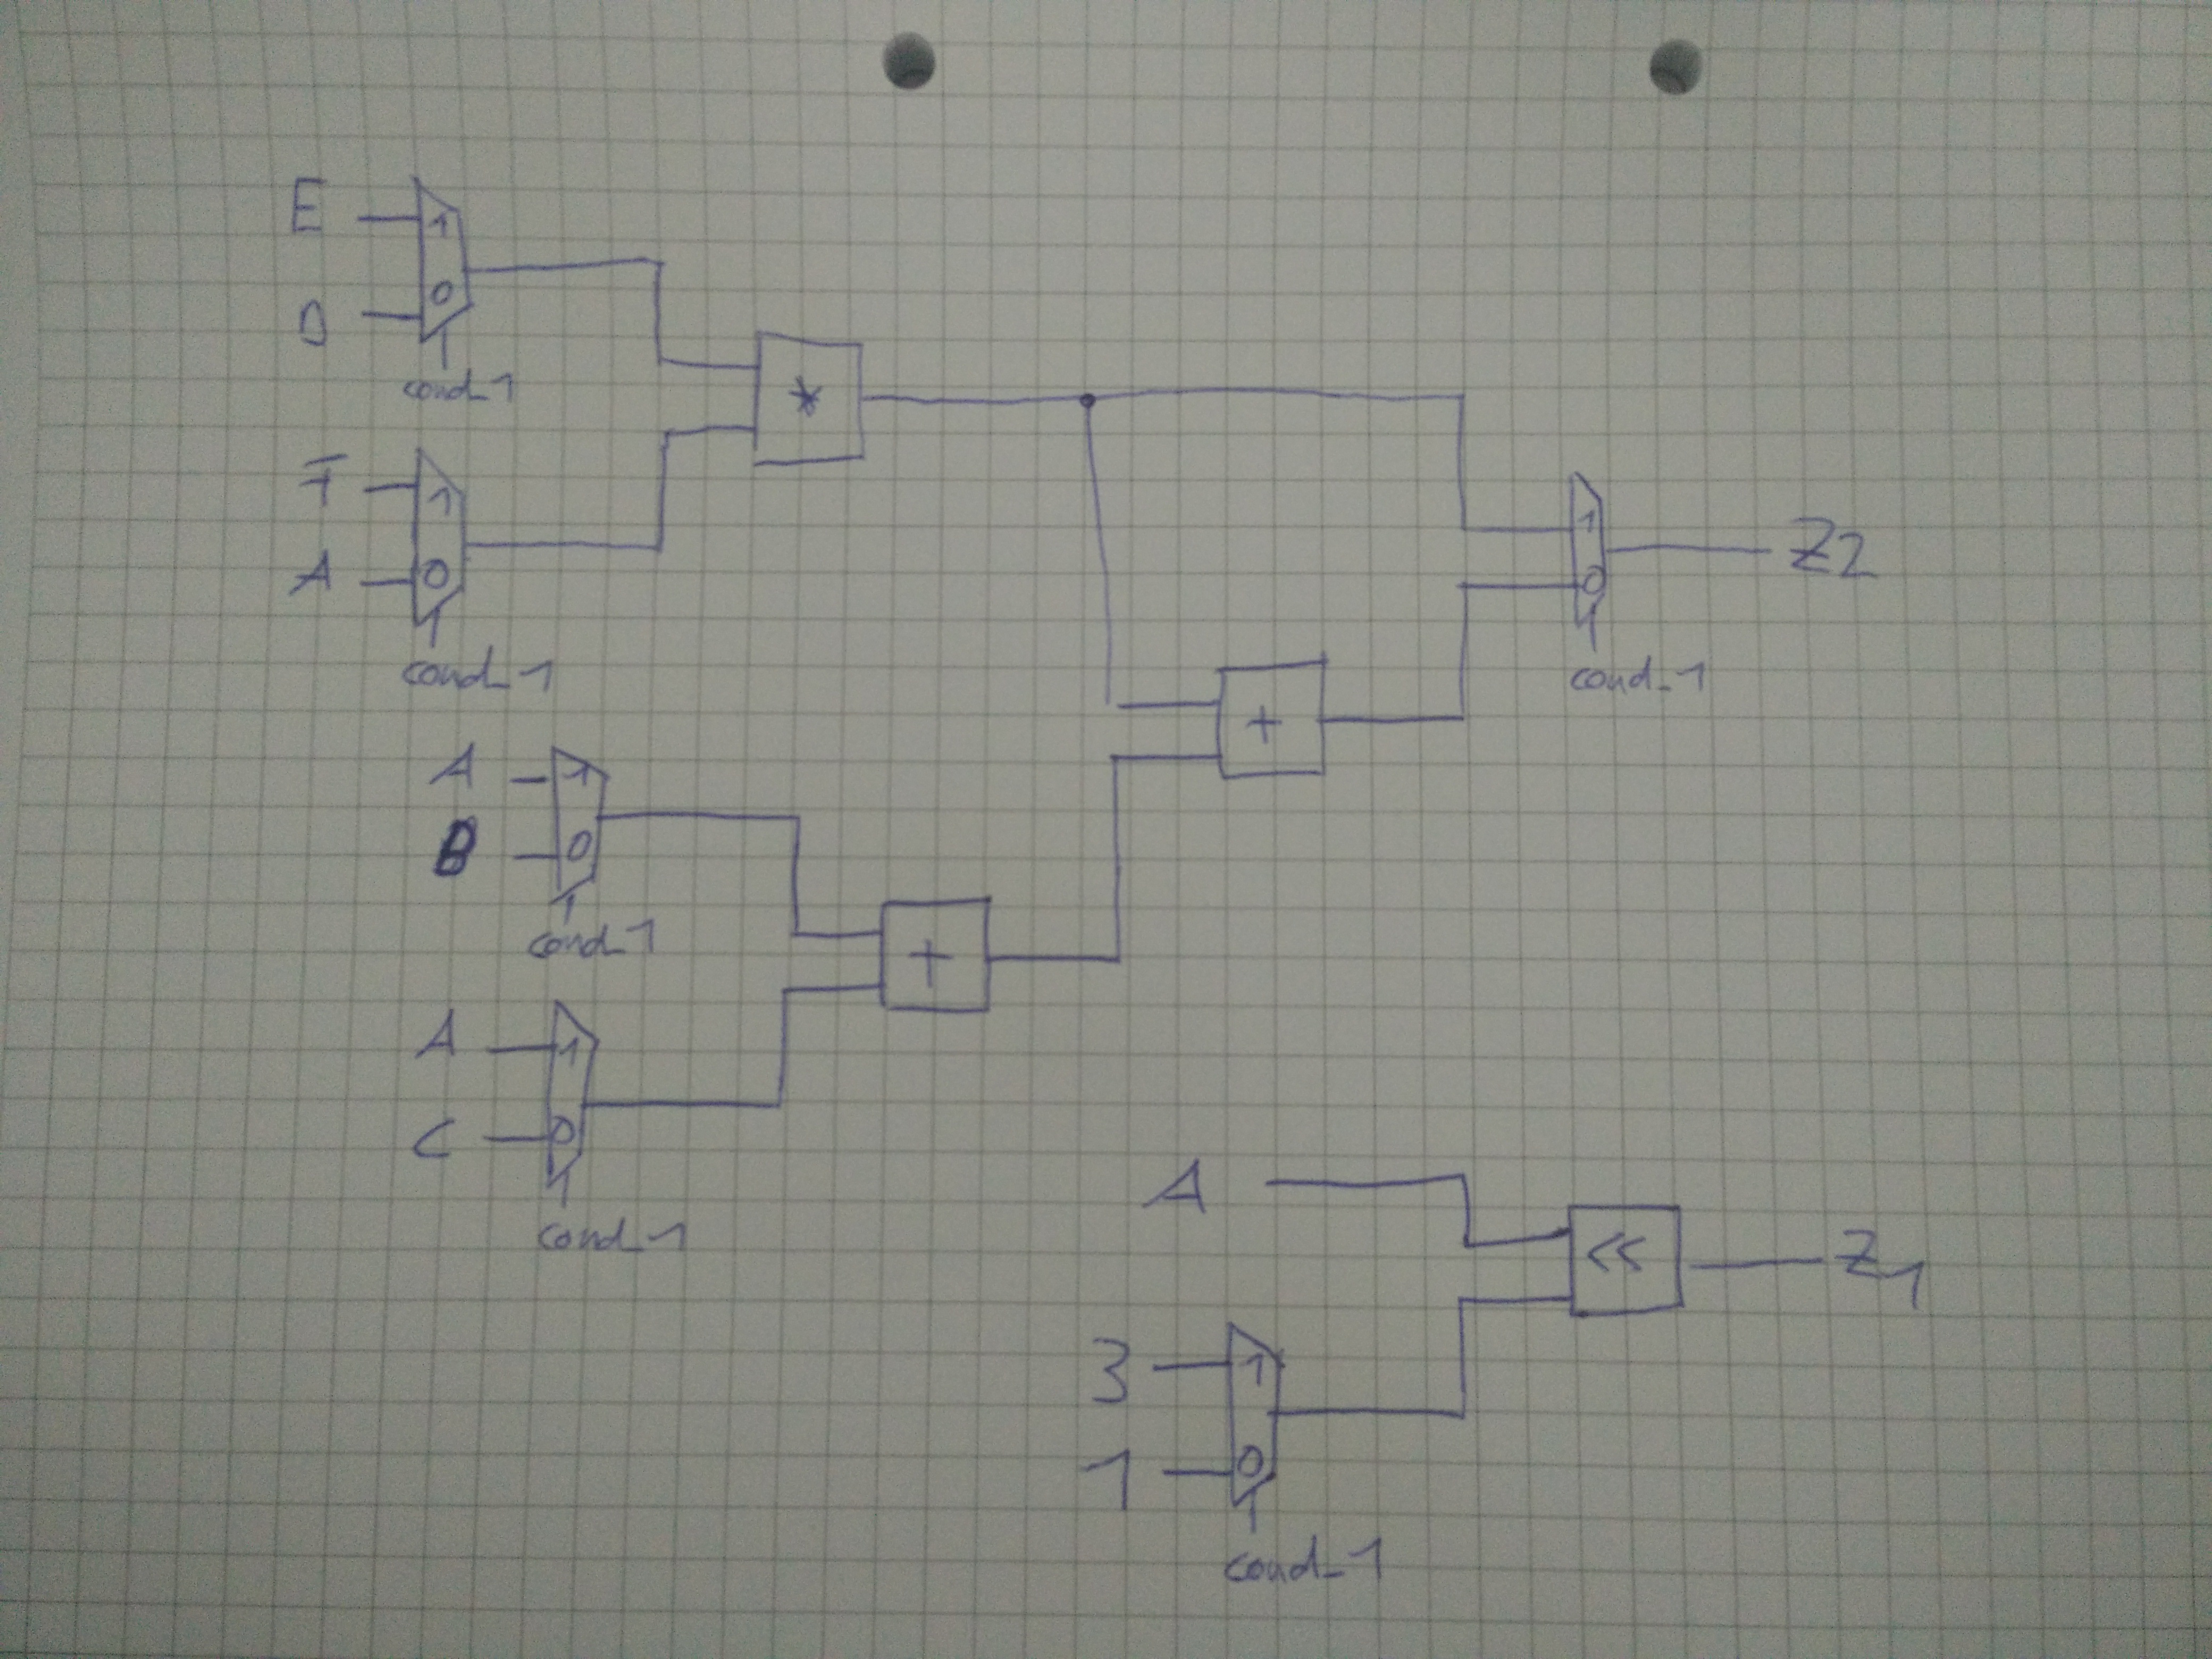 E
1
0
D
cond_1
*
F
1
A
0
cond_1
1
Z2
0
cond_1
+
A
1
B
0
cond_1
+
A
1
C
0
cond_1
A
<<
Z1
3
1
1
0
cond_1